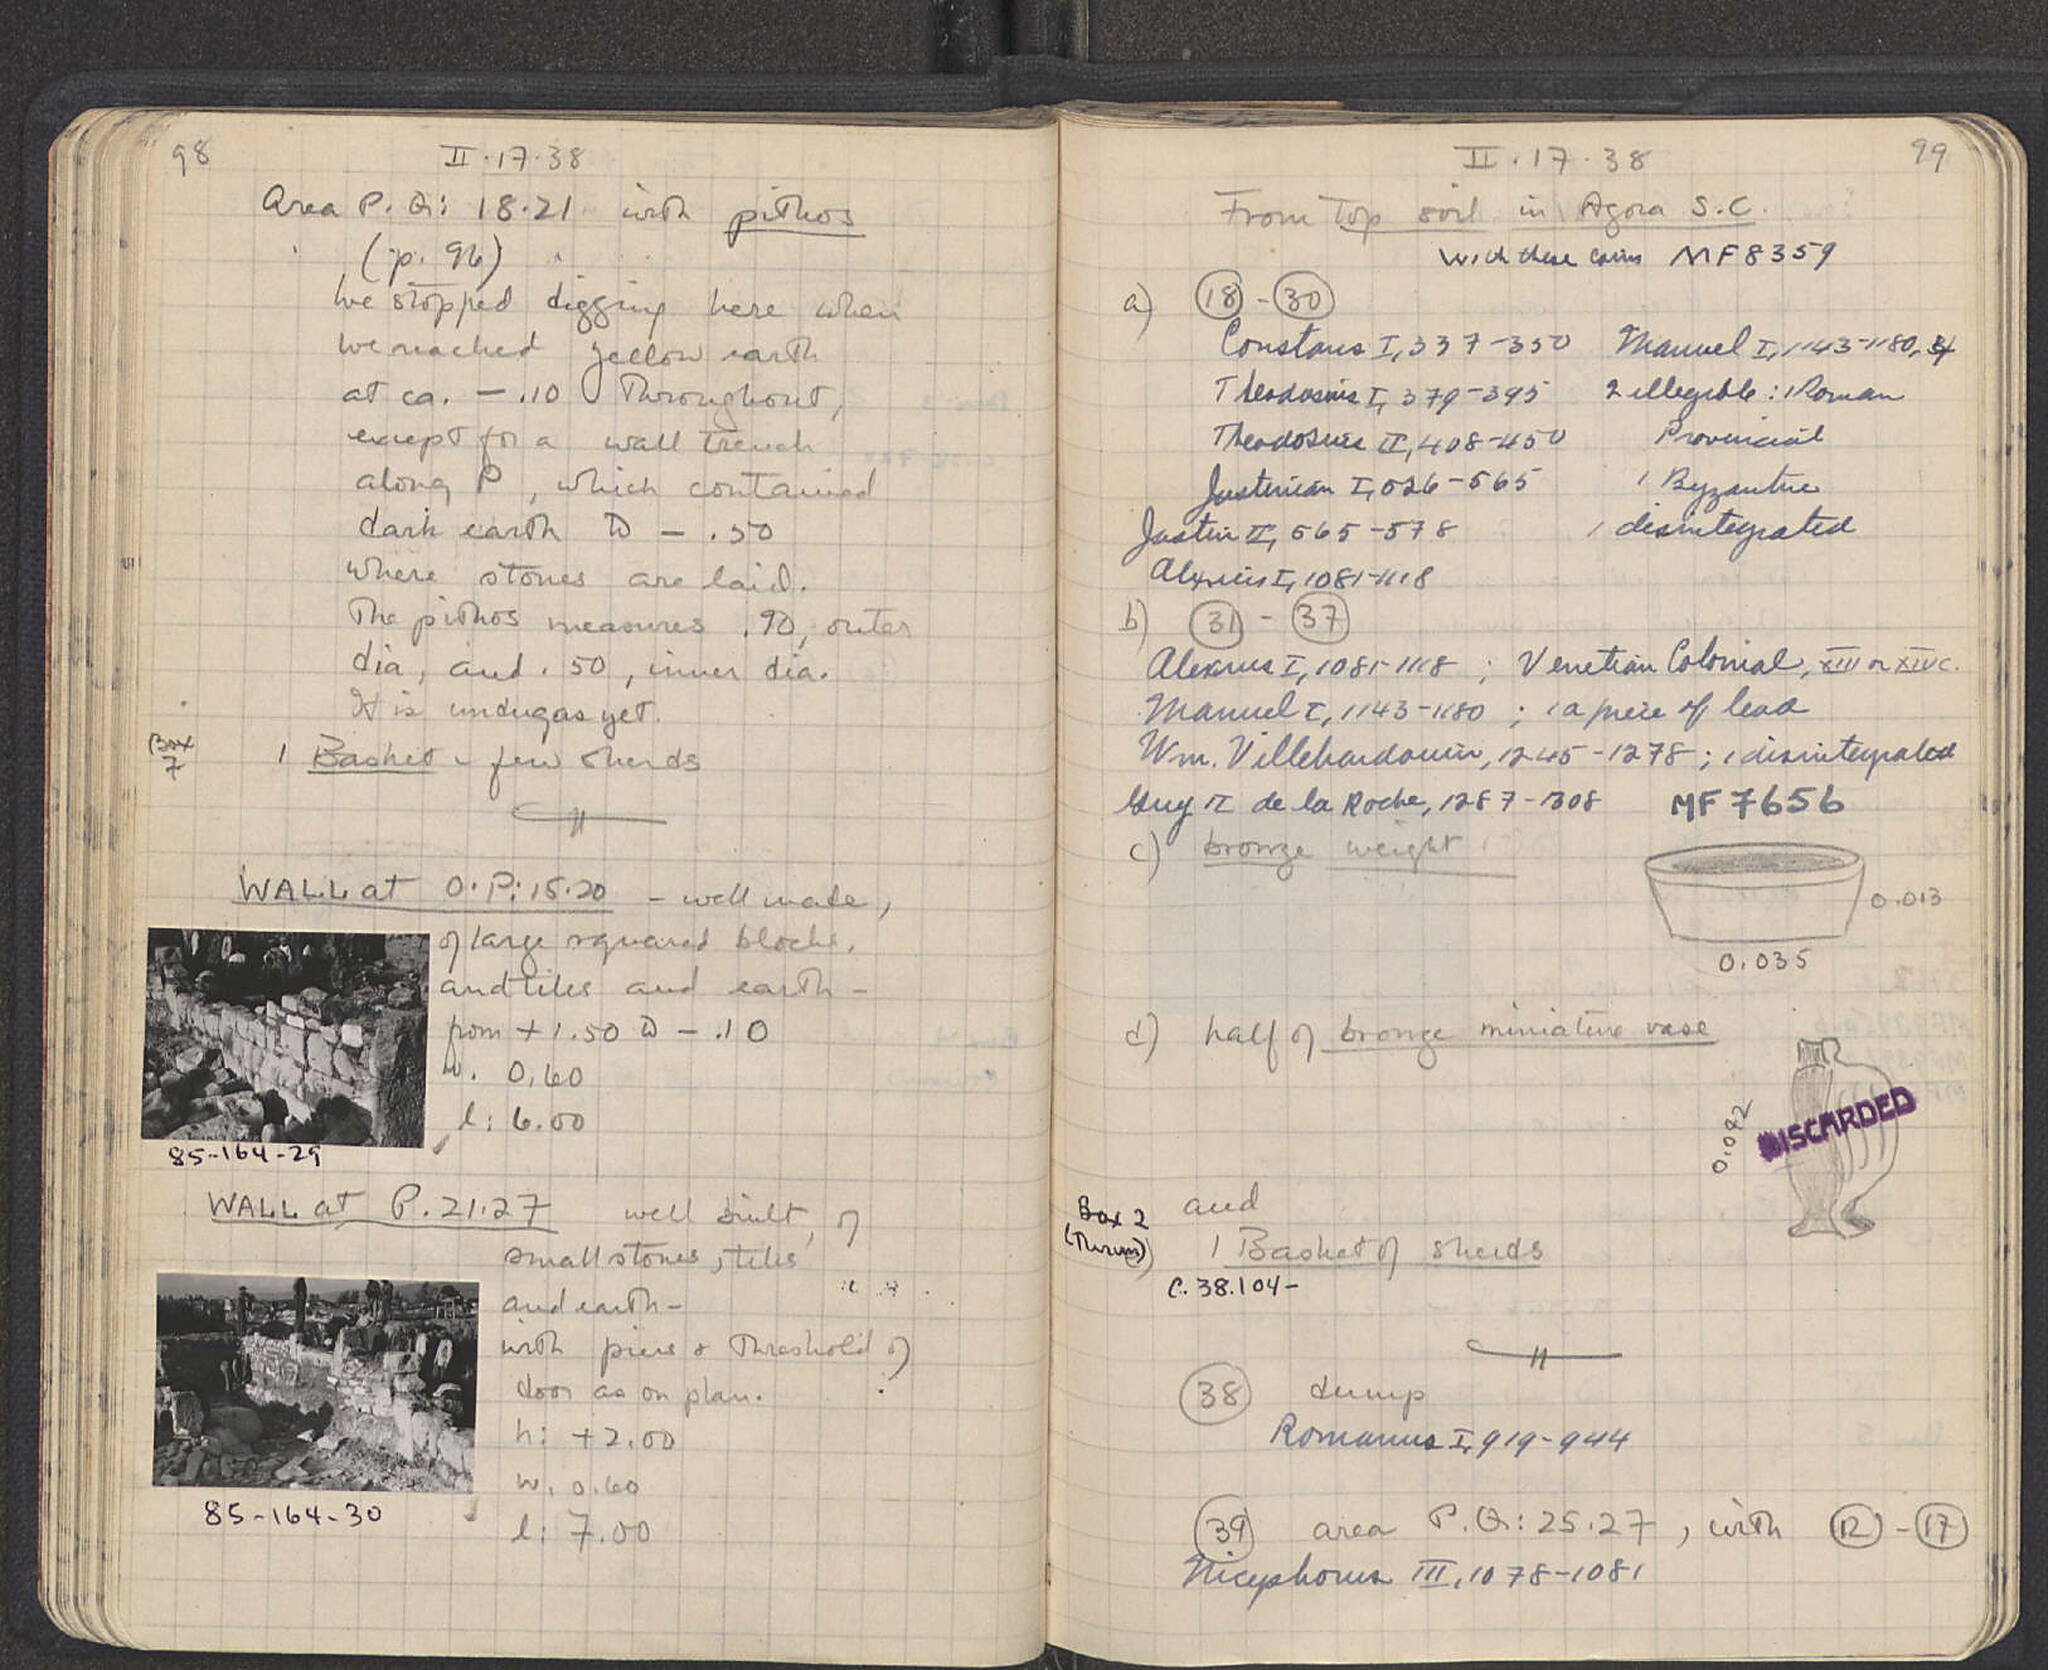 98
II·17·38
Area P.Q: 18·21 with pithos
(p. 96)
We stopped digging here when
we reached yellow earth
at ca. –.10 Throughout,
except for a wall trench
along P, which contained
dark earth to –.50
where stones are laid.
The pithos measures .90, outer
dia, and .50, inner dia.
It is undug as yet.
Box 7
1 Basket – few sherds
WALL at O.P: 15·20 – well made,
of large squared blocks,
and tiles and earth –
from +1.50 to –.10
w. 0.60
l: 6.00
85-164-29
WALL at P. 21·27 well built, of
small stones, tiles
and earth –
with piers & threshold of
door as on plan.
h: +2.00
w. 0.60
l: 7.00
85-164-30
99
II·17·38
From Top soil in Agora S.C.
With these coins MF8359
a) 18 - 30
Constans I, 337-350 Manuel I, 1143-1180, 4
Theodosius I, 379-395 2 illegible: 1 Roman
Theodosius II, 408-450 Provincial
Justinian I, 526-565 1 Byzantine
Justin II, 565-578 1 disintegrated
Alexius I, 1081-1118
b) 31 - 37
Alexius I, 1081-1118; Venetian Colonial, XIII or XIV c.
Manuel I, 1143-1180; 1 a piece of lead
Wm. Villehardouin, 1245-1278; 1 disintegrated
Guy II de la Roche, 1287-1308 MF 7656
c) bronze weight
0.013
0.035
d) half of bronze miniature vase
0.042
DISCARDED
and
Box 2
1 Basket of sherds
C.38.104-
38 dump
Romanus I, 919-944
39 area P.Q: 25·27, with 12 - 17
Nicephorus III, 1078-1081